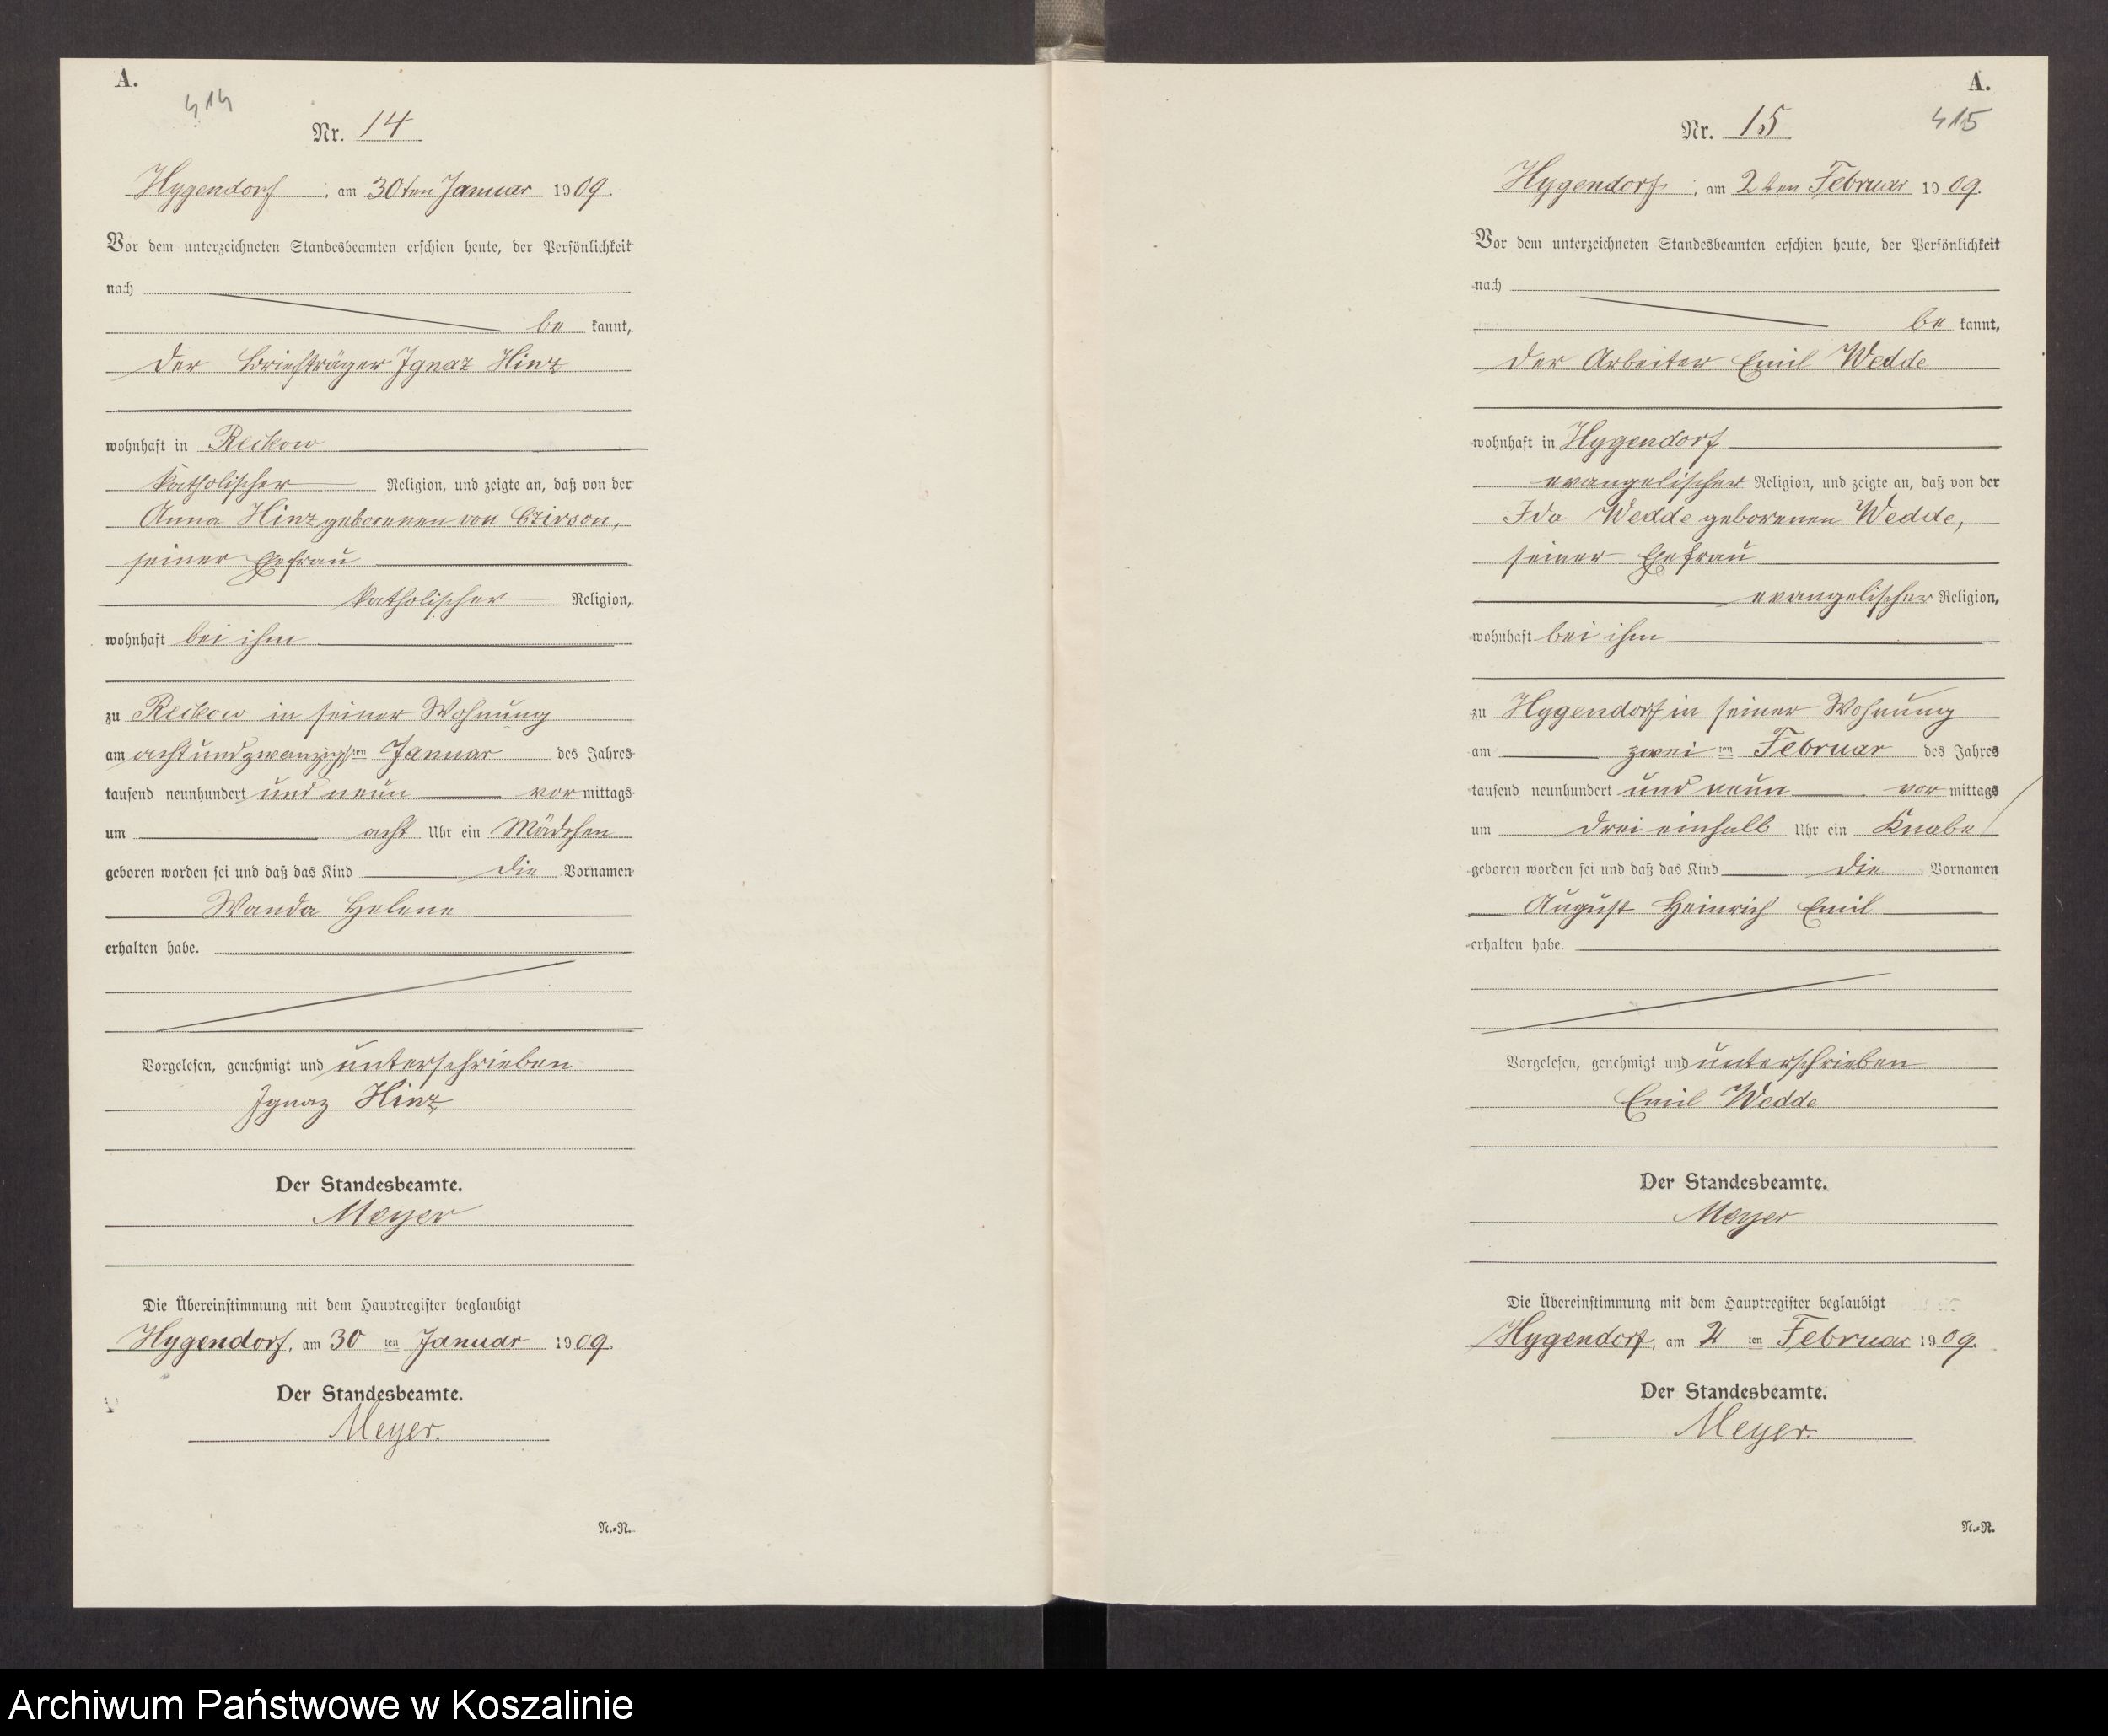 A.
414
Nr. 14
Hygendorf, am 30ten Januar 1909.
Vor dem unterzeichneten Standesbeamten erschien heute, der Persönlichkeit
nach
be kannt,
der Briefträger Ignaz Hinz
wohnhaft in Reckow
katholischer Religion, und zeigte an, daß von der
Anna Hinz geborenen von Czirson,
seiner Ehefrau
katholischer Religion,
wohnhaft bei ihm
zu Reckow in seiner Wohnung
am achtundzwanzigsten Januar des Jahres
tausend neunhundert und neun vor mittags
um acht Uhr ein Mädchen
geboren worden sei und daß das Kind die Vornamen
Wanda Helene
erhalten habe.
Vorgelesen, genehmigt und unterschrieben
Ignaz Hinz
Der Standesbeamte.
Meyer
Die Übereinstimmung mit dem Hauptregister beglaubigt
Hygendorf, am 30 ten Januar 1909.
Der Standesbeamte.
Meyer.
N.=N.
A.
415
Nr. 15
Hygendorf, am 2ten Februar 1909.
Vor dem unterzeichneten Standesbeamten erschien heute, der Persönlichkeit
nach
be kannt,
der Arbeiter Emil Wedde
wohnhaft in Hygendorf
evangelischer Religion, und zeigte an, daß von der
Ida Wedde geborenen Wedde,
seiner Ehefrau
evangelischer Religion,
wohnhaft bei ihm
zu Hygendorf in seiner Wohnung
am zwei ten Februar des Jahres
tausend neunhundert und neun vor mittags
um drei einhalb Uhr ein Knabe
geboren worden sei und daß das Kind die Vornamen
August Heinrich Emil
erhalten habe.
Vorgelesen, genehmigt und unterschrieben
Emil Wedde
Der Standesbeamte.
Meyer
Die Übereinstimmung mit dem Hauptregister beglaubigt
Hygendorf, am 2 ten Februar 1909.
Der Standesbeamte.
Meyer.
N.=N.
Archiwum Państwowe w Koszalinie